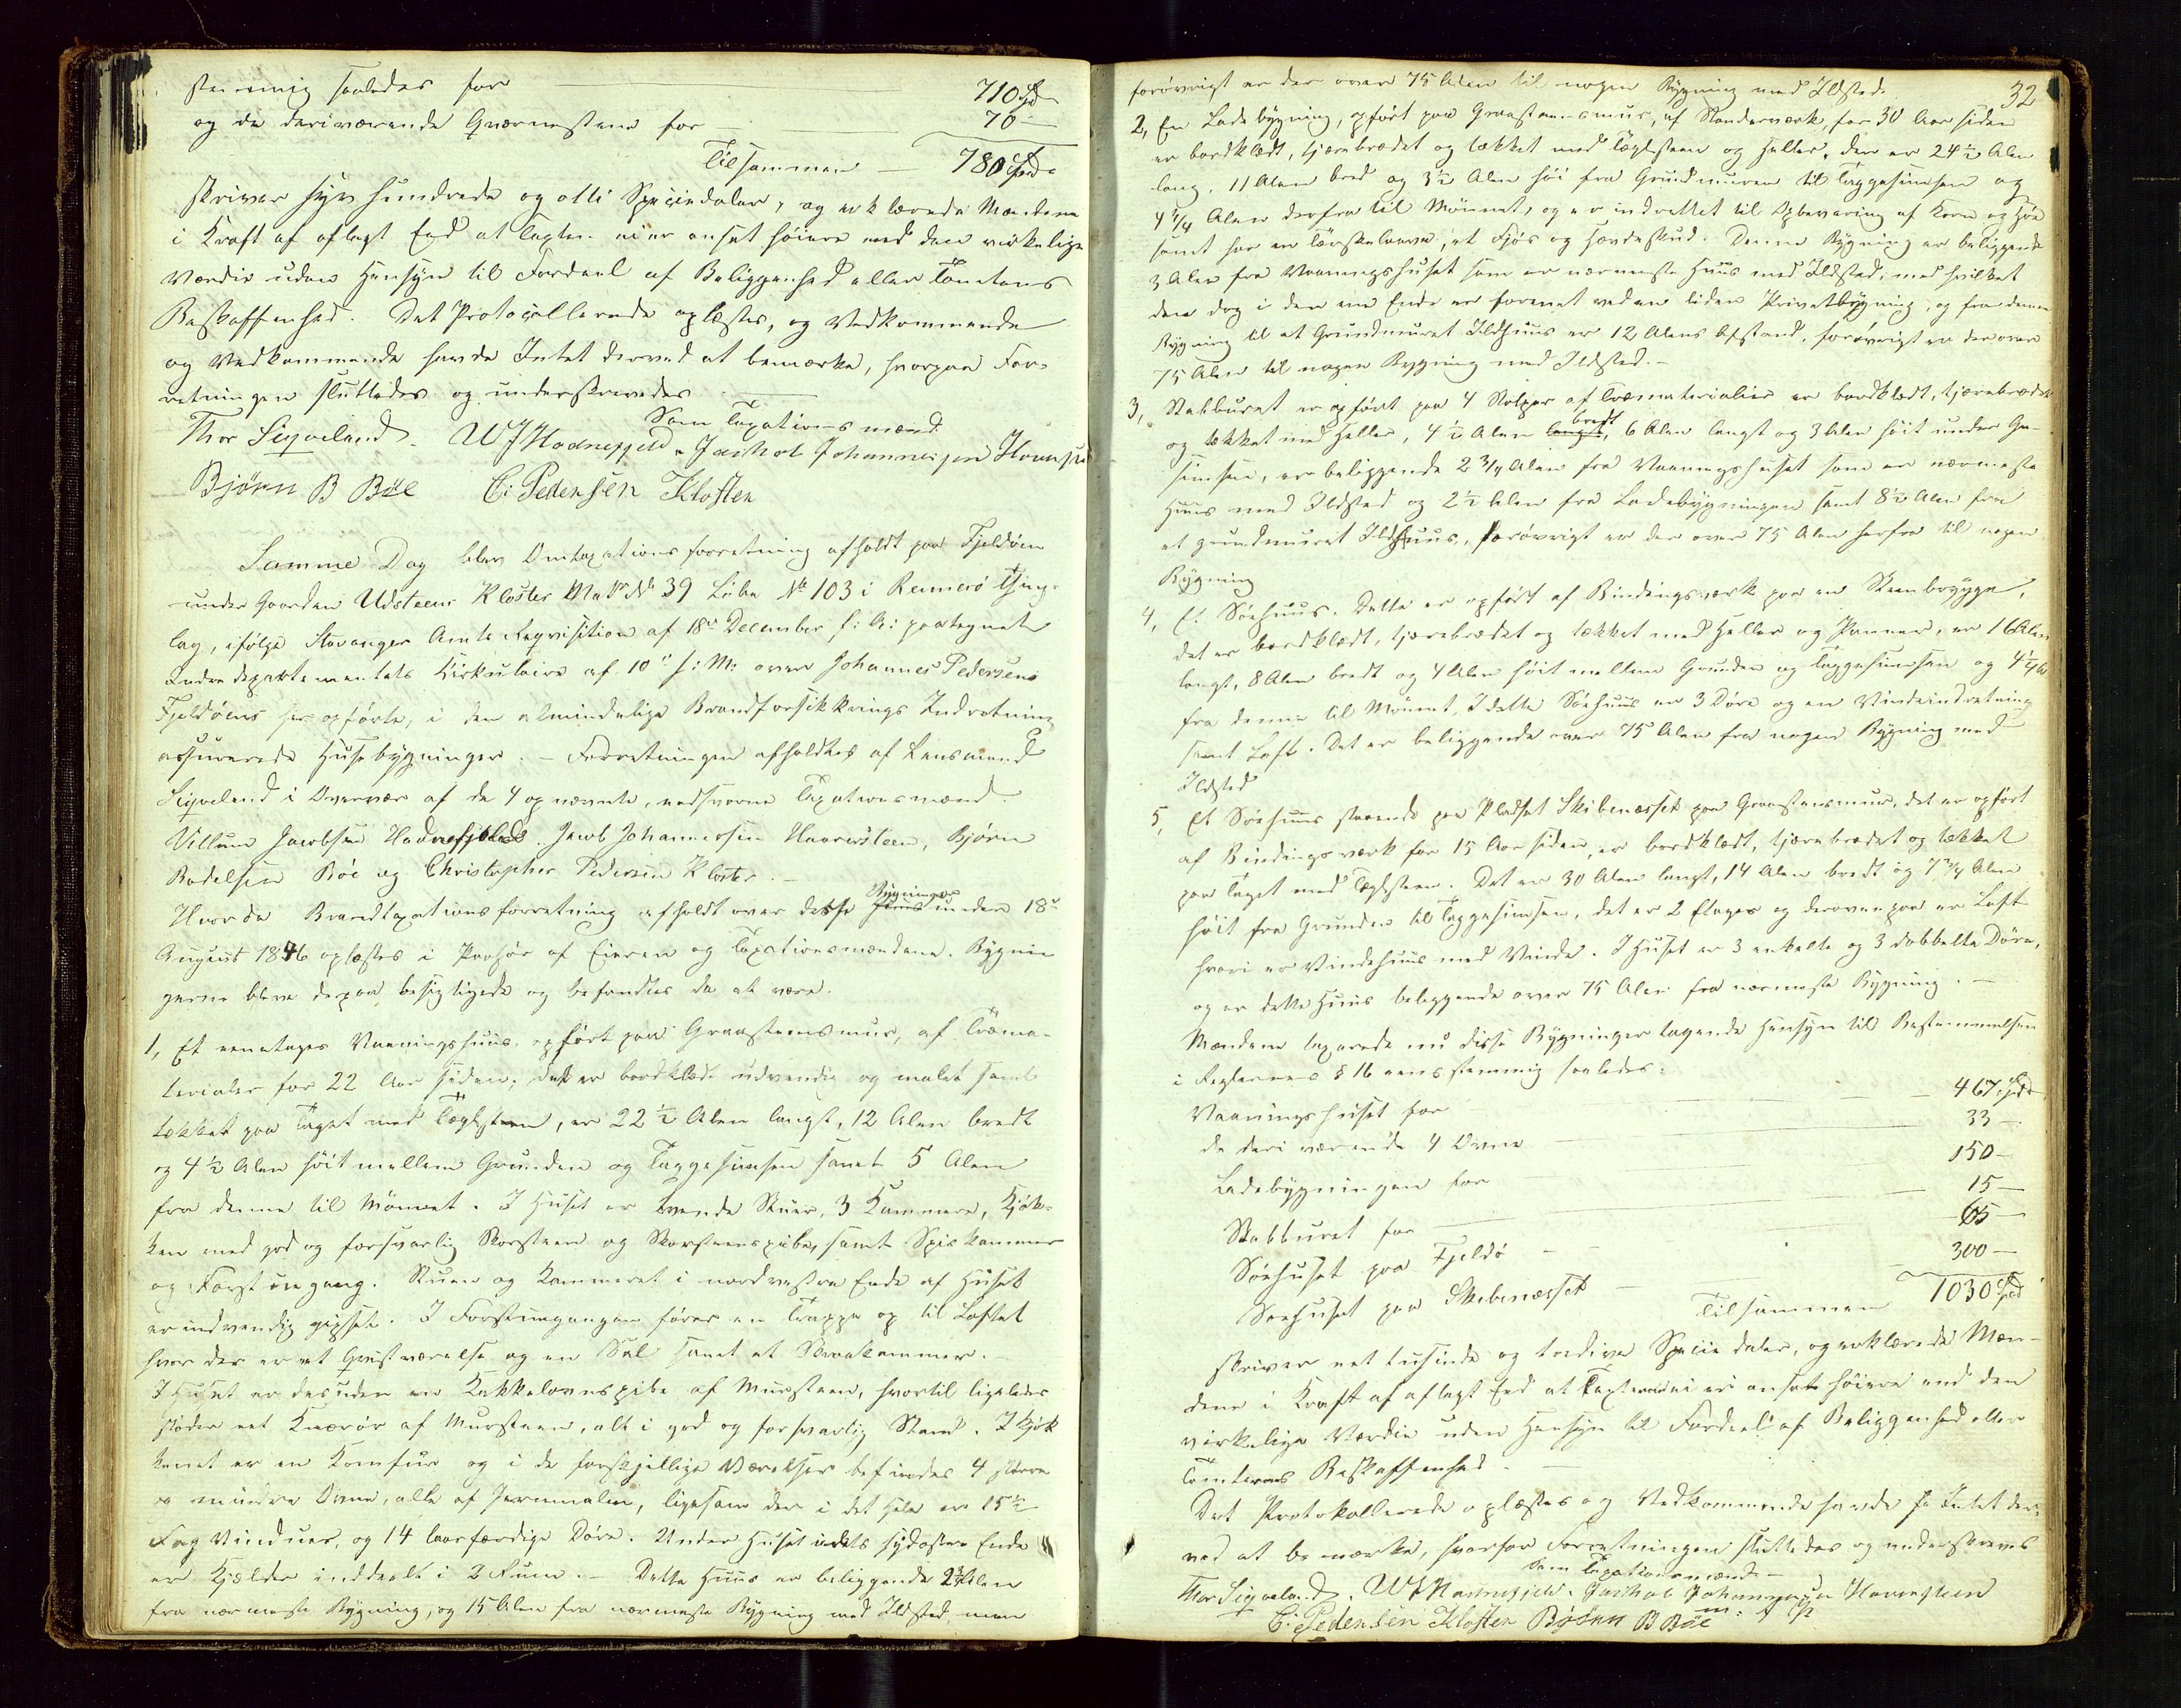 stemmig saaledes for 710 Spd
og de deriværende Qværnestene for 70 —
Tilsammen — 780 Spd.
skriver syv hundrede og otti Speciedaler, og erklærede Mændene
i Kraft af aflagt Eed at Taxten ei er ansat høiere end den virkelige
Værdie uden Hensyn til Fordeel af Beliggenhed eller Tomtens
Beskaffenhed. Det Protocollerede oplæstes, og Vedkommende
og Vedkommende havde Intet derved at bemærke, hvorpaa For-
retningen sluttedes og underskrevedes
Som Taxationsmænd
Thor Siqveland. W J Hodnefjeld. Jachob Johannesen
Bjørn B Bøe C. Pedersen Kloster
Samme Dag blev Omtaxationsforretning afholdt paa Fjeldøen
under Gaarden Udsteens Kloster Mat. No 39 Løbe No 103 i Rennesø Thing-
lag, ifølge Stavanger Amts Reqvisition af 18de December f: A: paategnet
Indredepartementets Cirkulaire af 10de s: M: over Johannes Pedersens
Fjeldøens her opførte, i den almindelige Brandforsikkrings Indretning
assurerede Husebygninger. — Forretningen afholdtes af Lensmand
Siqveland i Overvær af de 4 opnævnte, eedsvorne Taxationsmænd
Villum Jacobsen Hodnefjeld. Jacob Johannessen Haavesteen, Bjørn
Bodelsen Bøe og Christopher Pedersen Kloster. —
Hvor da Brandtaxationsforretning afholdt over disse Bygninger under 18de
August 1846 oplæstes i Paahør af Eieren og Taxationsmændene. Bygnin
gerne bleve derpaa besigtigede og befandtes da at være.
1, Et eenetages Vaaningshuus opført paa Graasteensmur, af Træma-
terialer for 22 Aar siden; det er bordklædt udvendig og malet samt
tækket paa Taget med Tæglsteen, er 22 1/2 Alen langt, 12 Alen bredt
og 4 1/2 Alen høit mellem Grunden og Taggesimsen samt 5 Alen
fra denne til Mønnet. I Huset er tvende Stuer, 3 Kammere, Kjøk-
ken med god og forsvarlig Skorsteen og Skorsteenspibe, samt Spiskammer
og Forstuegang. Stuen og Kammeret i nordvestre Ende af Huset
er indvendig gipset. I Forstuegangen fører en Trappe op til Loftet
hvor der er et Gjestværelse og en Sal samt et Skraakammer.
I Huset er desuden en Kakkelovnspibe af Muursteen, hvortil ligeledes
støder eet Knærør af Muursteen, alt i god og forsvarlig Stand. I Kjøk
kenet er en Komfur og i de forskjellige Værelser befindes 4 større
og mindre Ovne, alle af Jernmalm, ligesom der i det Hele er 15 1/2
Fag Vinduer, og 14 laasfærdige Døre. Under Huset i dets sydostre Ende
er Kjælder inddeelt i 2 Rum. — Dette Huus er beliggende 2 3/4 Alen
fra nærmeste Bygning, og 15 Alen fra nærmeste Bygning med Ildsted, men
32
forøvrigt er der over 75 Alen til nogen Bygning med Ildsted.
2, En Ladebygning, opført paa Graasteensmuur, af Standerværk, for 30 Aar siden
er bordklædt, tjærebrædet og tækket med Tæglsteen og Heller, den er 24 1/2 Alen
lang, 11 Alen bred og 3 1/2 Alen høi fra Grundmuren til Taggesimsen og
4 3/4 Alen derfra til Mønnet, og er indrettet til Opbevaring af Korn og Høe
samt har en Tærskelaave, et Fjøs og Hærdeskud. Denne Bygning er beliggende
3 Alen fra Vaaningshuset som er nærmeste Huus med Ildsted, med hvilket
den dog i den ene Ende er forenet ved en liden Privatbygning, og fra denne
Bygning til et Grundmuret Ildhuus er 12 Alens Afstand, forøvrigt er der over
75 Alen til nogen Bygning med Ildsted. —
3, Stabburet er opført paa 4 Stolper af Træmaterialier er bordklædt, tjærebrædet
og tækket med Heller, 4 1/2 Alen bredt, 6 Alen langt og 3 Alen høit under Ge-
simsen, er beliggende 2 3/4 Alen fra Vaaningshuset som er nærmeste
Huus med Ildsted og 2 1/2 Alen fra Ladebygningen samt 8 1/2 Alen fra
et grundmuret Ildhuus, forøvrigt er der over 75 Alen herfra til nogen
Bygning
4, Et Søehuus. Dette er opført af Bindingsværk paa en Steenbrygge,
det er bordklædt, tjærebrædet og tækket med Heller og Panner, er 16 Alen
langt, 8 Alen bredt og 4 Alen høit mellem Grunden og Taggesimsen og 4 1/4 Al
fra denne til Mønnet. I dette Søehuus er 3 Døre og en Vindeindretning
samt Loft. Det er beliggende over 75 Alen fra nogen Bygning med
Ildsted
5, Et Søehuus staaende paa Pladset Skibenæsset paa Graasteensmuur, det er opført
af Bindingsværk for 15 Aar siden, er bordklædt, tjærebrædet og tækket
paa Taget med Tæglsteen. Det er 30 Alen langt, 14 Alen bredt og 7 3/4 Alen
høit fra Grunden til Taggesimsen, det er 2 Etager og derovenpaa er Loft
hvori er Vindehuus med Vinde. I Huset er 3 enkelte og 3 dobbelte Døre,
og er dette Huus beliggende over 75 Alen fra nærmeste Bygning. —
Mændene taxerede nu disse Bygninger tagende Hensyn til Bestemmelsen
i Reglernes § 16 eensstemmig saaledes:
Vaaningshuset for — 467 Spd
de deri værende 4 Ovne — 33 —
Ladebygningen for — 150 —
Stabburet for — 15 —
Søehuset paa Fjeldø — 65 —
Søehuset paa Skibenæsset — 300 —
Tilsammen 1030 Spd
skriver eet tusinde og tredive Specie daler, og erklærede Mæn-
dene i Kraft af aflagt Eed at Taxten ei er ansat høiere end den
virkelige Værdie uden Hensyn til Fordeel af Beliggenhed eller
Tomternes Beskaffenhed. —
Det Protokollerede oplæstes og Vedkommende havde Intet der-
ved at bemærke, hvorfor Forretningen sluttedes og underskreves
Som Taxationsmænd —
Thor Siqveland. W J Hodnefjeld. Jachob Johannessen Haavesteen
C. Pedersen Kloster Bjørn B Bøe